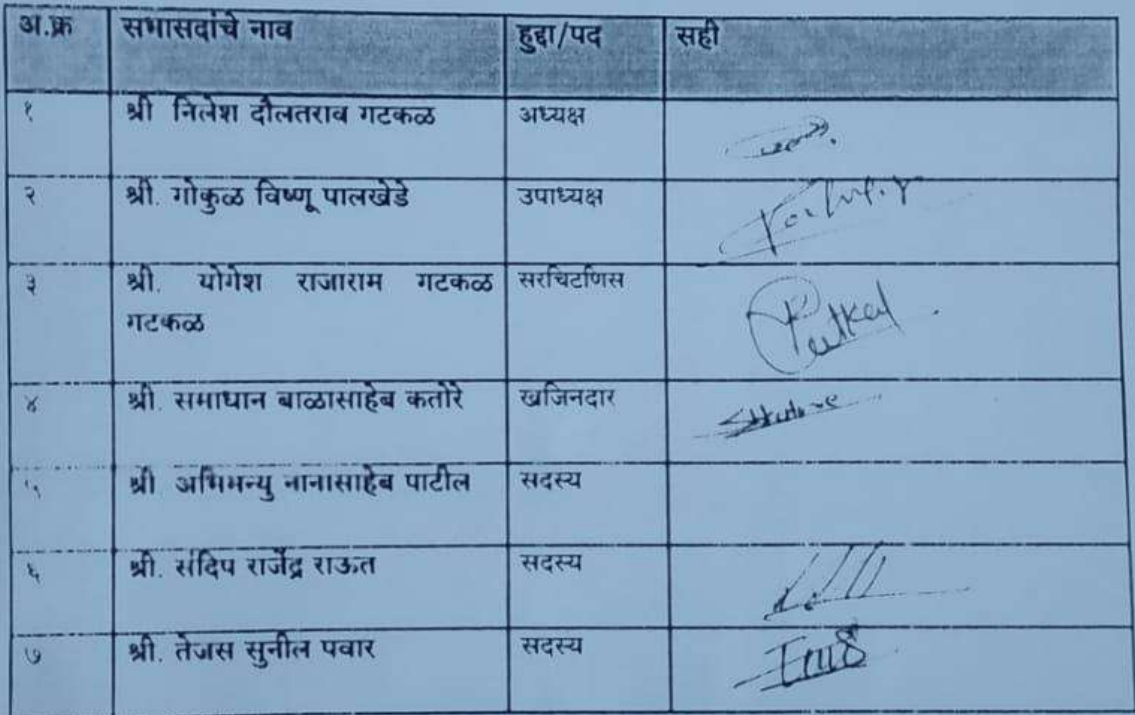 अ.क्र सभासदांचे नाव हुद्दा/पद सही
१ श्री निलेश दौलतराव गटकळ अध्यक्ष
२ श्री. गोकुळ विष्णू पालखेडे उपाध्यक्ष
३ श्री. योगेश राजाराम गटकळ सरचिटणिस
गटकळ
४ श्री. समाधान बाळासाहेब कतोरे खजिनदार
५ श्री अभिमन्यु नानासाहेब पाटील सदस्य
६ श्री. संदिप राजेंद्र राऊत सदस्य
७ श्री. तेजस सुनील पवार सदस्य